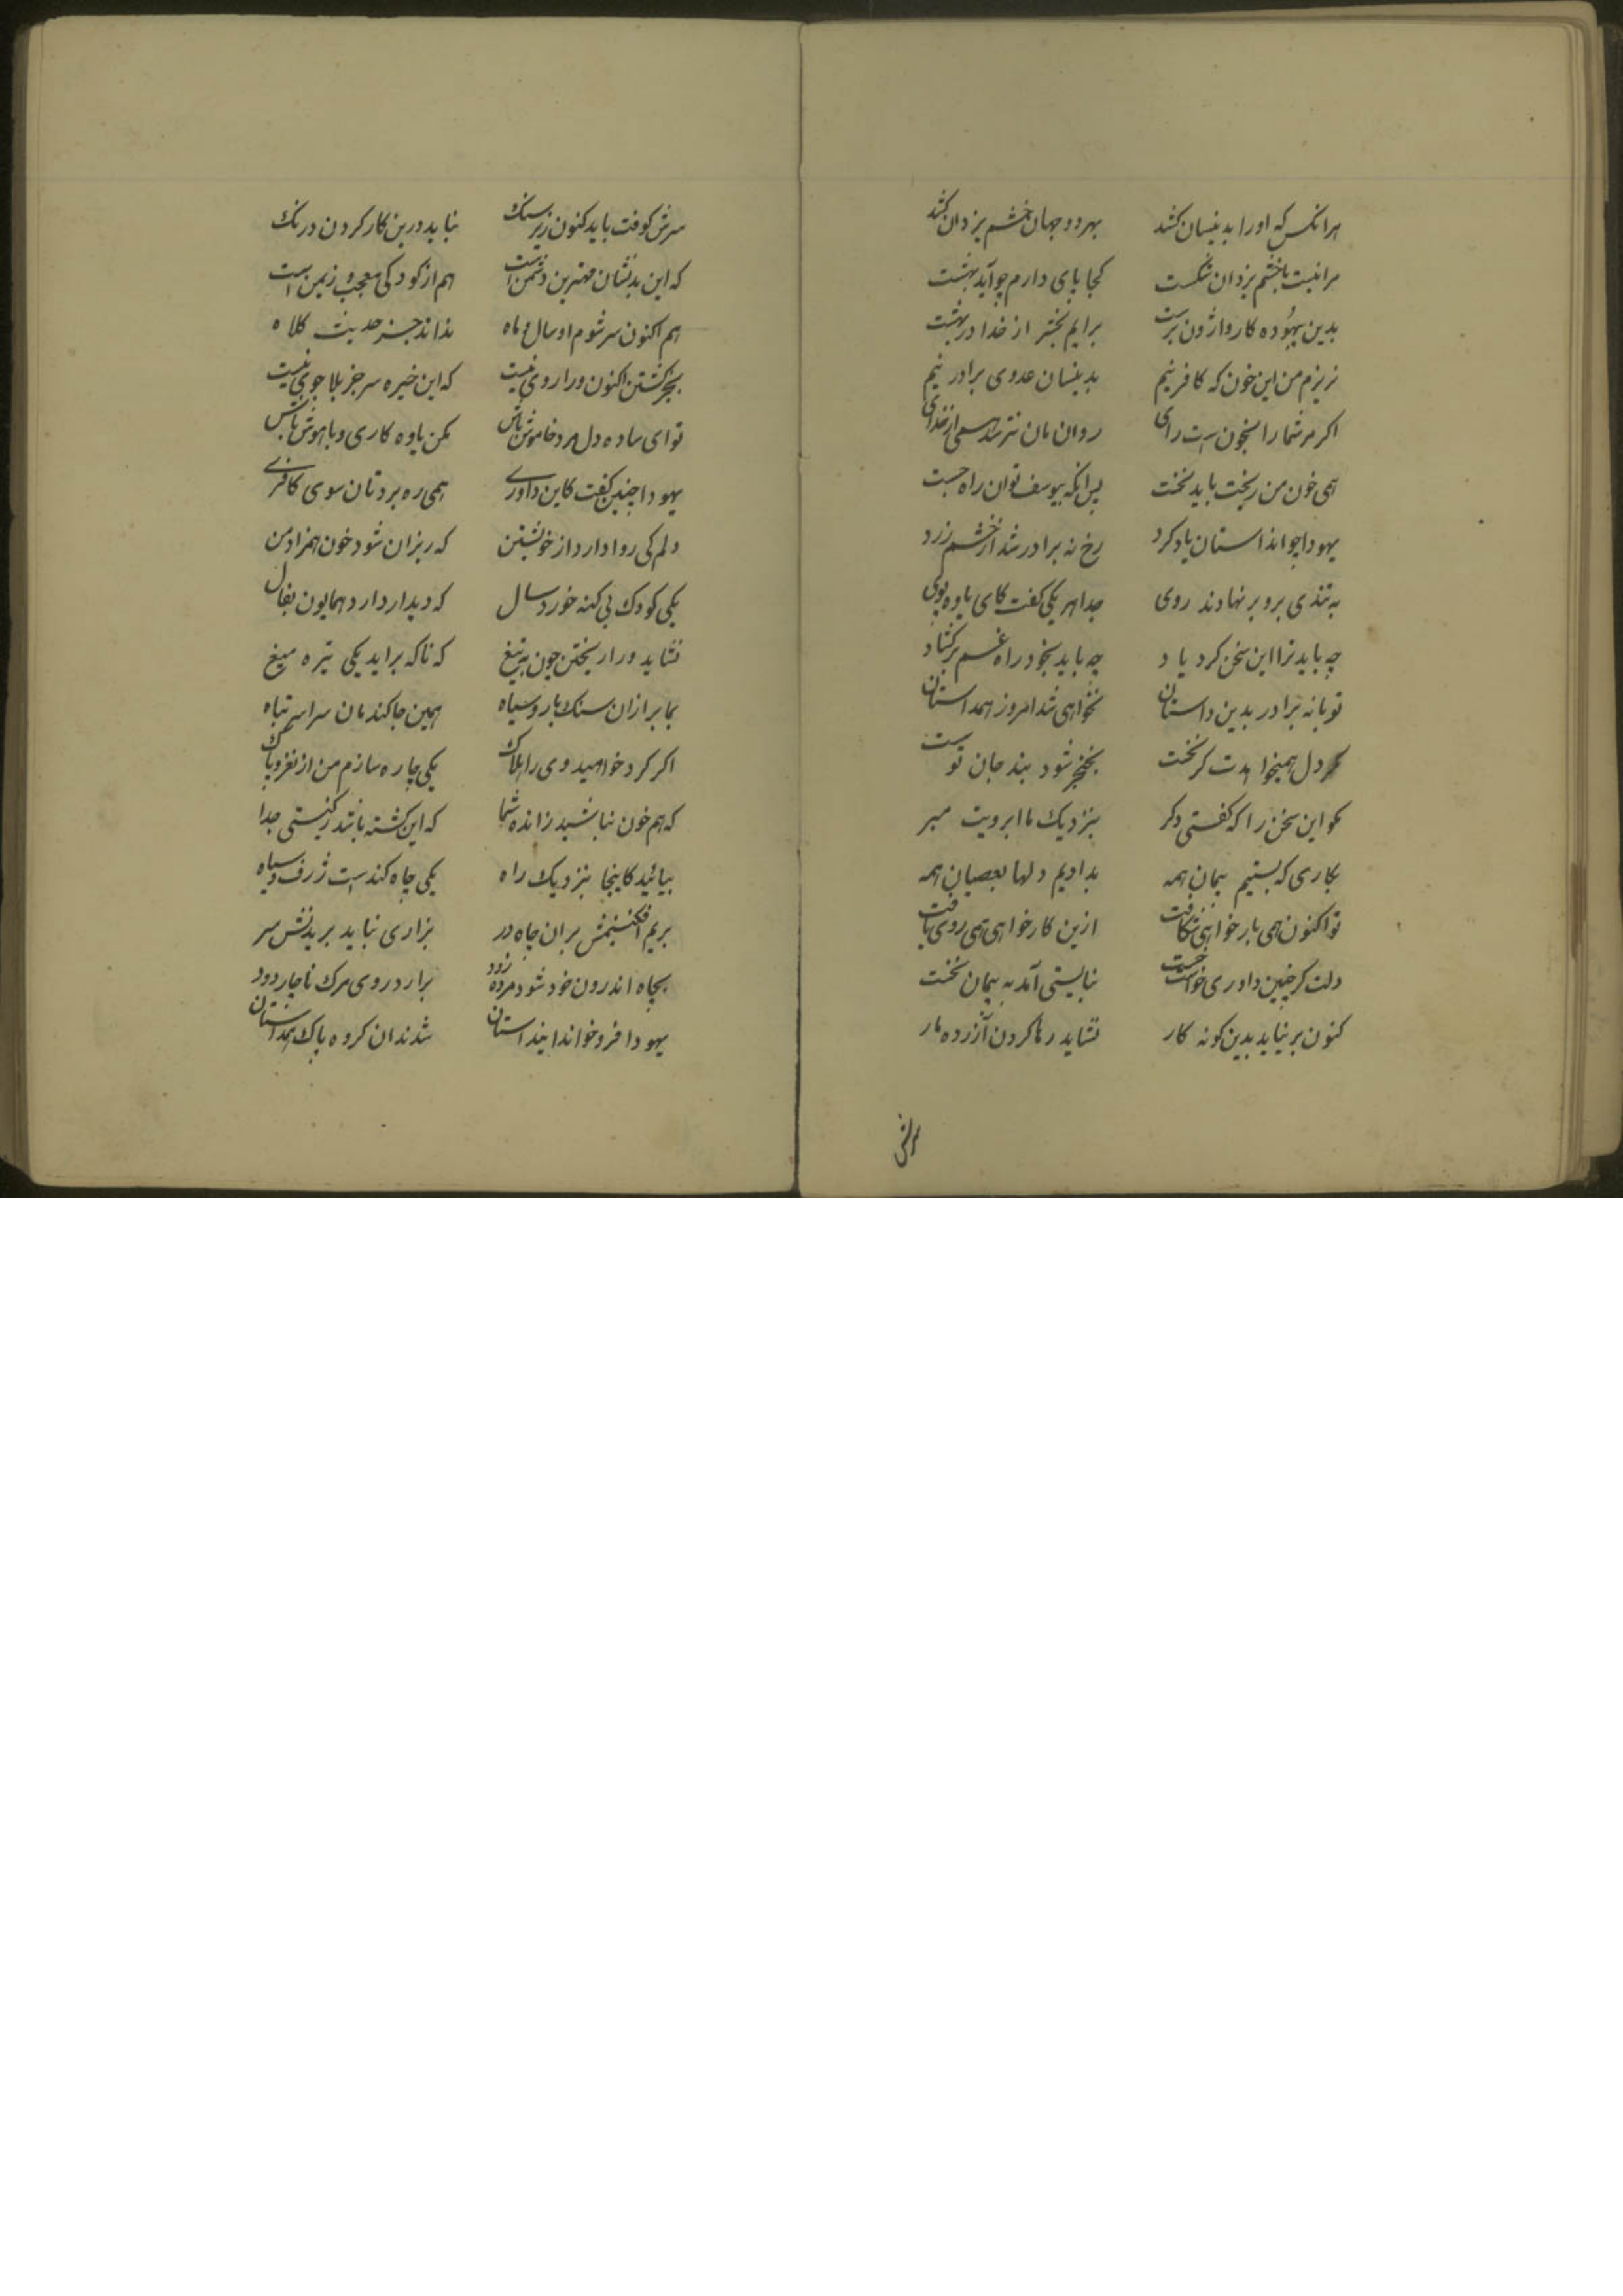 هرانکس که اورا بدینسان کشد بهر دو جهان خشم یزدان کشد
مرا نیست با خشم یزدان شکست کجا پای دارم چو آید بهشت
بدین بیهده کار واژون پرست برایم نجشتر از خدا در بهشت
نریزم من این خون که کافر نیم بدینسان عدوی برادر نیم
اکر مر شما را بخون است رای روان مان نترسد همی از خدای
همی خون من ریخت باید نخست پس انکه بیوسف توان راه جست
یهودا چو این داستان یاد کرد رخ نه برادر شد از خشم زرد
به تندی برو بر نهادند روی جدا هر یکی کفت کای یاوه پوی
چه باید ترا این سخن کرد یاد چه باید بخود راه غم بر کشاد
تو با نه برادر بدین داستان نخواهی شد امروز همداستان
دل همیخواهدت کر نخست بخنجر شود بند جان تو ست
مکو این سخن را که کفتی دکر بنزدیک ما ابرویت مبر
بکاری که بستیم پیمان همه بدادیم دلها بعصیان همه
تو اکنون همی باز خواهی شکافت ازین کار خواهی همی روی تافت
دلت کر چنین داوری خواست جست نبایستی آمد به پیمان نخست
کنون بر نیاید بدین کونه کار نشاید رها کردن آزرده مار
سرش
سرش کوفت باید کنون زیر سنک نباید درین کار کردن درنک
که این بدنشان مهترین دشمن است هم از کودکی معجب و زیمن است
هم اکنون سر شوم او سال و ماه نداند جز حدیث کلاه
بجز کشتن اکنون ورا روی نیست که این خیره سر جز بلا جوی نیست
تو ای ساده دل مرد خاموش باش مکن یاوه کاری و با هوش باش
یهودا چنین کفت کاین داوری همی ره بردتان سوی کافری
دلم کی روا دارد از خویشتن که ریزان شود خون همزاد من
یکی کودک بی کنه خورد سال که دیدار دارد همایون بفال
نشاید ورا ریختن خون به تیغ که ناکه براید یکی تیره میغ
بما بر ازان سنک بارد سیاه همین جا کندمان سراسر تباه
اکر کرد خواهید وی را هلاک یکی چاره سازم من از نغز و پاک
که هم خون نباشید زانده شما که این کشته باشد زکیتی جدا
بیائید کاینجا بنزدیک راه یکی چاه کندست ژرف و سیاه
بریم افکنیمش بران چاه در بزاری نباید بریدنش سر
بچاه اندرون خود شود مرده زود برارد ز وی مرک ناچار دود
یهودا فرو خواند این داستان شدند ان کروه پاک همداستان